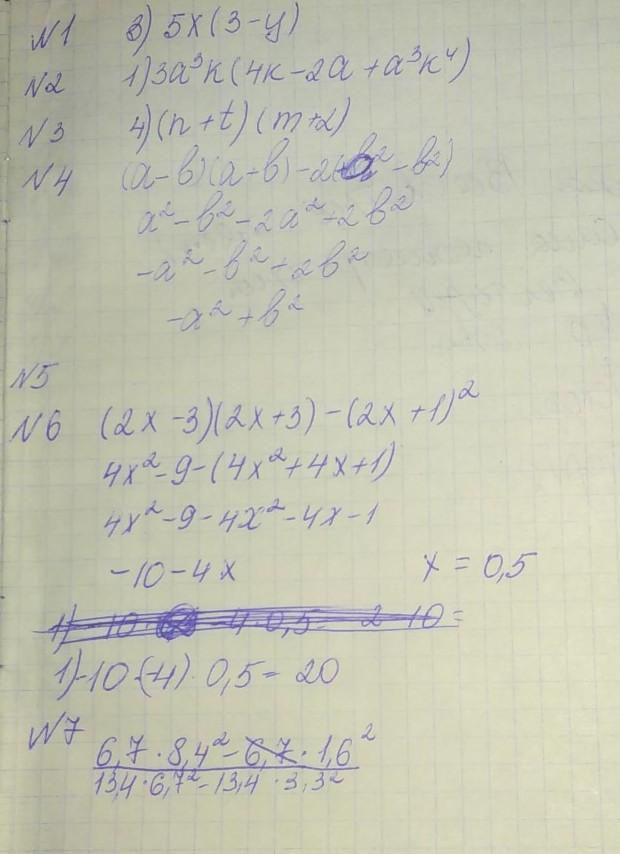 N1 3) 5x(3-y)
N2 1) 3a³k(4k-2a+a³k⁴)
N3 4) (n+t)(m+2)
N4 (a-b)(a+b)-2(a²-b²)
a²-b²-2a²+2b²
-a²-b²+2b²
-a²+b²
N5
N6 (2x-3)(2x+3)-(2x+1)²
4x²-9-(4x²+4x+1)
4x²-9-4x²-4x-1
-10-4x x = 0,5
1)-10-(-4)·0,5= 20
N7
6,7·8,4²-6,7·1,6²
13,4·6,7²-13,4·3,3²